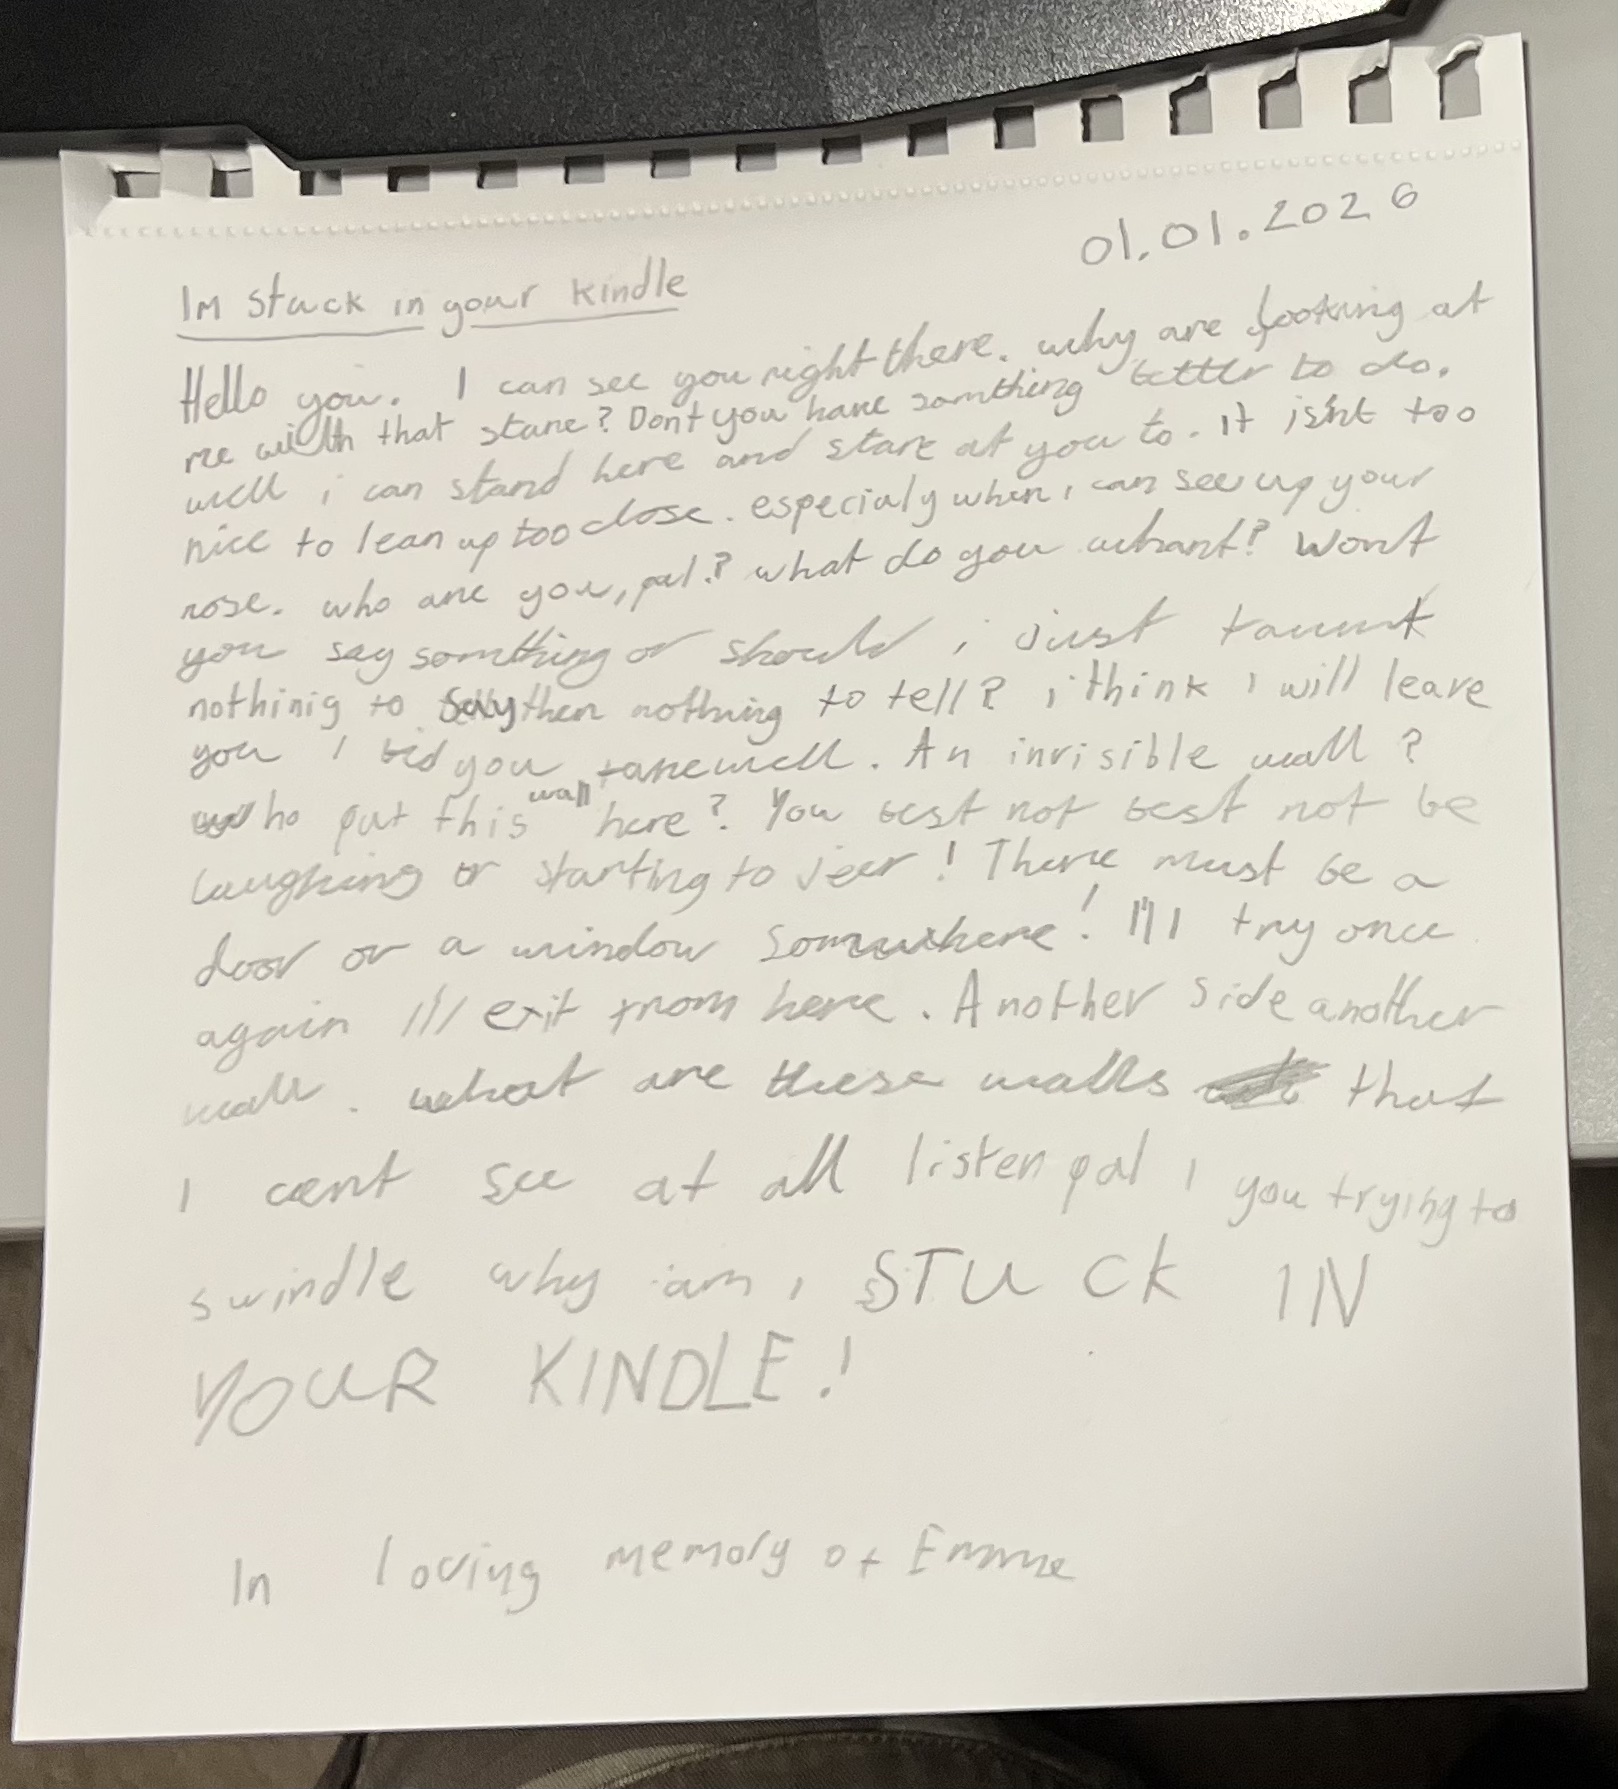 01.01.2026
Im stuck in your kindle
Hello you. I can see you right there. why are looking at
me with that stare? Dont you have somthing better to do.
well i can stand here and stare at you to. it isnt too
nice to lean up too close. especialy when i can see up your
nose. who are you, pal.? what do you whant? Wont
you say something or should i just taunt
nothinig to say then nothing to tell? i think i will leave
you I bid you farewell. An invisible wall?
who put this wall here? You best not best not be
laughing or starting to jeer! There must be a
door or a window somwhere! I'll try once
again I'll exit from here. Another side another
wall. what are these walls that
I cant see at all listen pal, you trying to
swindle why am i STUCK IN
YOUR KINDLE!
In loving memory of Emme